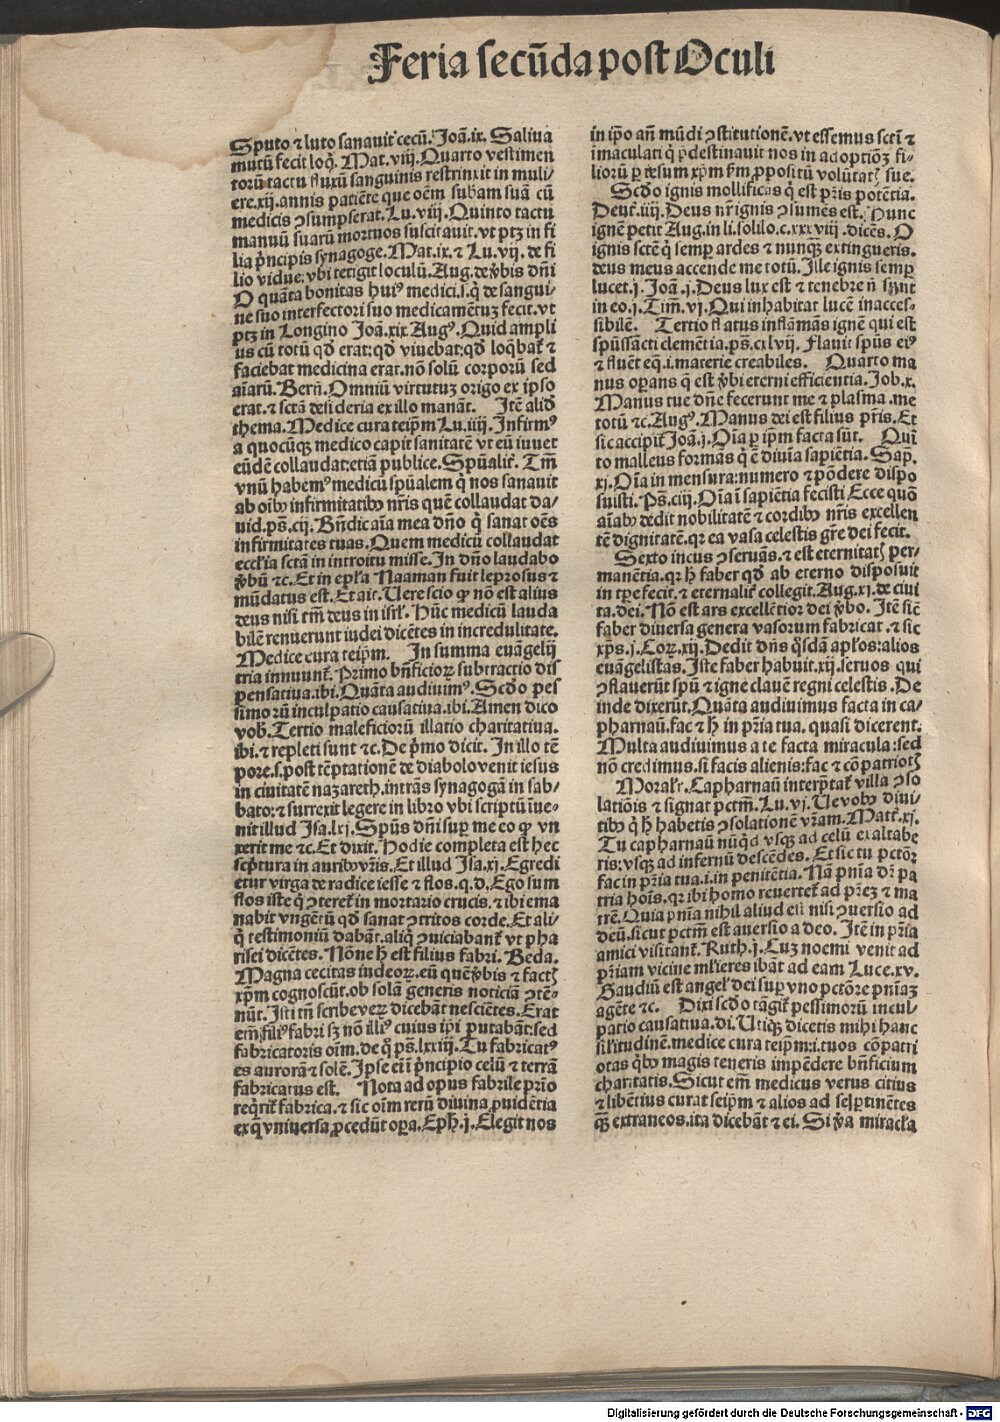 Feria secūda post Oculi
Sputo ⁊ luto sanauit cecū. Joā.ix. Saliua
mutū fecit loq̄. Mat.viij. Quarto vestimen
torū tactu fluxū sanguinis restrinxit in muli/
ere.xij.annis patiēte que oēm subam suā cū
medicis ꝯsumpserat. Lu.viij. Quinto tactu
manuū suarū mortuos suscitauit. vt ptz in fi
lia pͥncipis synagoge. Mat.ix.⁊ Lu.vij. de fi
lio vidue. vbi tetigit loculū. Aug. de v̓bis dn̄i
O quāta bonitas huiꝰ medici.s.q̇ de sangui-
ne suo interfectori suo medicamētuz fecit.vt
ptz in Longino Joā.xix Augꝰ. Quid ampli
us cū totū qd̄ erat:qd̄ viuebat:qd̄ loq̄bat᷑ ⁊
faciebat medicina erat.non solū corporū sed
aīarū. Bern̄. Omniū virtutuz origo ex ipso
erat.⁊ sctā desideria ex illo manāt. Itē aliḋ
thema. Medice cura teip̄m Lu.iiij. Infirmꝰ
a quocūqꝫ medico capit sanitatē vt eū iuuet
eūdē collaudat:etiā publice. Spūalit᷑. Tm̄
vnū habemꝰ medicū spūalem q̇ nos sanauit
ab oībꝫ infirmitatibꝫ nr̄is quē collaudat da/
uid.ps̄.cij. Bn̄dic aīa mea dn̄o q̇ sanat oēs
infirmitates tuas. Quem medicū collaudat
eccl'ia sctā in introitu misse. In dn̄o laudabo
v̓bū ⁊c. Et in epl'a Naaman fuit leprosus ⁊
mūdatus est. Et ait. Uere scio ꝙ nō est alius
deus nisi tm̄ deus in isrl'. Hūc medicū lauda
bilē renuerunt iudei dicētes in incredulitate.
Medice cura teip̄m. In summa euāgelij
tria innuunt᷑. Primo bn̄ficioꝝ subtractio dis
pensatiua.ibi. Quāta audiuimꝰ. Scḋo pes
simorū inculpatio causatiua.ibi. Amen dico
vob̄. Tertio maleficiorū illatio charitatiua.
ibi.⁊ repleti sunt ⁊c. De pͥmo dicit. In illo tē
pore.s.post tēptationē de diabolo venit iesus
in ciuitatē nazareth.intrās synagogā in sab/
bato:⁊ surrexit legere in libro vbi scriptū īue-
nit illud Isa.lxj. Spūs dn̄i suꝑ me eo ꝙ vn
xerit me ⁊c. Et dixit. Hodie completa est hec
scpͥtura in auribꝫ vr̄is. Et illud Isa.xj. Egredi
etur virga de radice iesse ⁊ flos.q.d. Ego sum
flos iste q̇ ꝯteret᷑ in mortario crucis.⁊ ibi ema
nabit vngētū qd̄ sanat ꝯtritos corde. Et ali/
q̇ testimoniū dabāt.aliq̇ ꝯuiciabant᷑ vt pha
risei dicētes. Nōne h̄ est filius fabri. Beda.
Magna cecitas iudeoꝝ.eū quē v̓bis ⁊ fact̄
xp̄m cognoscūt.ob solā generis noticiā ꝯtē-
nūt. Isti tn̄ scribe veꝝ dicebāt nesciētes. Erat
em̄ filiꝰ fabri sꝫ nō illiꝰ cuius ip̄i putabāt:sed
fabricatoris oīm.de q̇ ps̄.lxxiij. Tu fabricatꝰ
es aurorā ⁊ solē. Ipse ei ī pͥncipio celū ⁊ terrā
fabricatus est. Nota ad opus fabrile pr̄io
req̇rit᷑ fabrica.⁊ sic oīm rerū diuina ꝓuidētia
ex q̇ vniuersa ꝓcedūt oꝑa. Eph̄.j. Elegit nos
in ip̄o an̄ mūdi ꝯstitutionē.vt essemus sctī ⁊
imaculati q̇ pͥdestinauit nos in adoptiōꝫ fi-
liorū ꝑ iesum xp̄m sm̄ ꝓpositū volūtat̄ sue.
Scḋo ignis mollificās q̇ est pr̄is potētia.
Deut᷑.iiij. Deus nr̄ ignis ꝯsumēs est. Hunc
ignē petit Aug.in li.soliło.c.xxxviij.dicēs. O
ignis sctē q̇ semꝑ ardes ⁊ nunqꝫ̄ extingueris.
deus meus accende me totū. Ille ignis semꝑ
lucet.j. Joā.j. Deus lux est ⁊ tenebre n̄ sunt
in eo.j. Tim̄.vj. Qui inhabitat lucē inacces-
sibilē. Tertio flatus inflāmās ignē qui est
spūssancti clemētia.ps̄.cxlvij. Flauit spūs eiꝰ
⁊ fluēt eq̄.i.materie creabiles. Quarto ma
nus oꝑans q̄ est v̓bi eterni efficientia. Job.x.
Manus tue dn̄e fecerunt me ⁊ plasma.me
totū ⁊c. Augꝰ. Manus dei est filius pr̄is. Et
sic accipit᷑ Joā.j. Oīa ꝑ ip̄m facta sūt. Quī
to malleus formās q̄ ē diuīa sapiētia. Sap.
xj. Oīa in mensura:numero ⁊ pōdere dispo
suisti. Ps̄.ciij. Oīa ī sapiētia fecisti Ecce quō
aīabꝫ dedit nobilitatē ⁊ cordibꝫ nr̄is excellen
tē dignitatē.qꝛ ea vasa celestis gr̄e dei fecit.
Sexto incus ꝯseruās.⁊ est eternitat̄ per-
manētia.qꝛ h̄ faber qd̄ ab eterno disposuit
in tꝑe fecit.⁊ eternalit᷑ collegit. Aug.xj.de ciui
ta.dei. Nō est ars excellētior dei v̓bo. Itē sic̄
faber diuersa genera vasorum fabricat.⁊ sic
xp̄s.j. Coꝝ.xij. Dedit dn̄s q̇sdā apl'os:alios
euāgelistas. Iste faber habuit.xij.seruos qui
ꝯflauerūt spū ⁊ igne clauē regni celestis. De
inde dixerūt. Quāta audiuimus facta in ca/
pharnaū.fac ⁊ h̄ in pr̄ia tua. quasi dicerent.
Multa audiuimus a te facta miracula:sed
nō credimus.si facis alienis:fac ⁊ cōpatriot̄
Moral'r. Capharnaū interp̄tat᷑ villa ꝯso
latiōis ⁊ signat pctm̄. Lu.vj. Ue vobꝫ diui/
tibꝫ q̇ h̄ habetis ꝯsolationē vr̄am. Matt᷑.xj.
Tu capharnaū nūq̇d vsqꝫ ad celū exaltabe
ris:vsqꝫ ad infernū descēdes. Et sic tu pctōr
fac in pr̄ia tua.i.in penitētia. Nā pn̄ia dr̄ pa
tria hoīs.qꝛ ibi homo reuertet᷑ ad pr̄eꝫ ⁊ ma
trē. Quia pn̄ia nihil aliud est nisi ꝯuersio ad
deū.sicut pctm̄ est auersio a deo. Itē in pr̄ia
amici visitant᷑. Ruth.j. Cuz noemi venit ad
pr̄iam vicine ml'ieres ibāt ad eam Luce.xv.
Gaudiū est angel' dei suꝑ vno pctōre pn̄iaꝫ
agēte ⁊c. Dixi scḋo tāgit᷑ pessimorū incul/
patio causatiua.di. Utiqꝫ dicetis mihi hanc
sil'itudinē.medice cura teip̄m:i.tuos cōpatri
otas q̇bꝫ magis teneris impēdere bn̄ficium
charitatis. Sicut em̄ medicus verus citius
⁊ libētius curat seip̄m ⁊ alios ad se ꝑtinētes
qꝫ̄ extraneos.ita dicebāt ⁊ ei. Si v̓a miracl'a
Digitalisierung gefördert durch die Deutsche Forschungsgemeinschaft - DFG